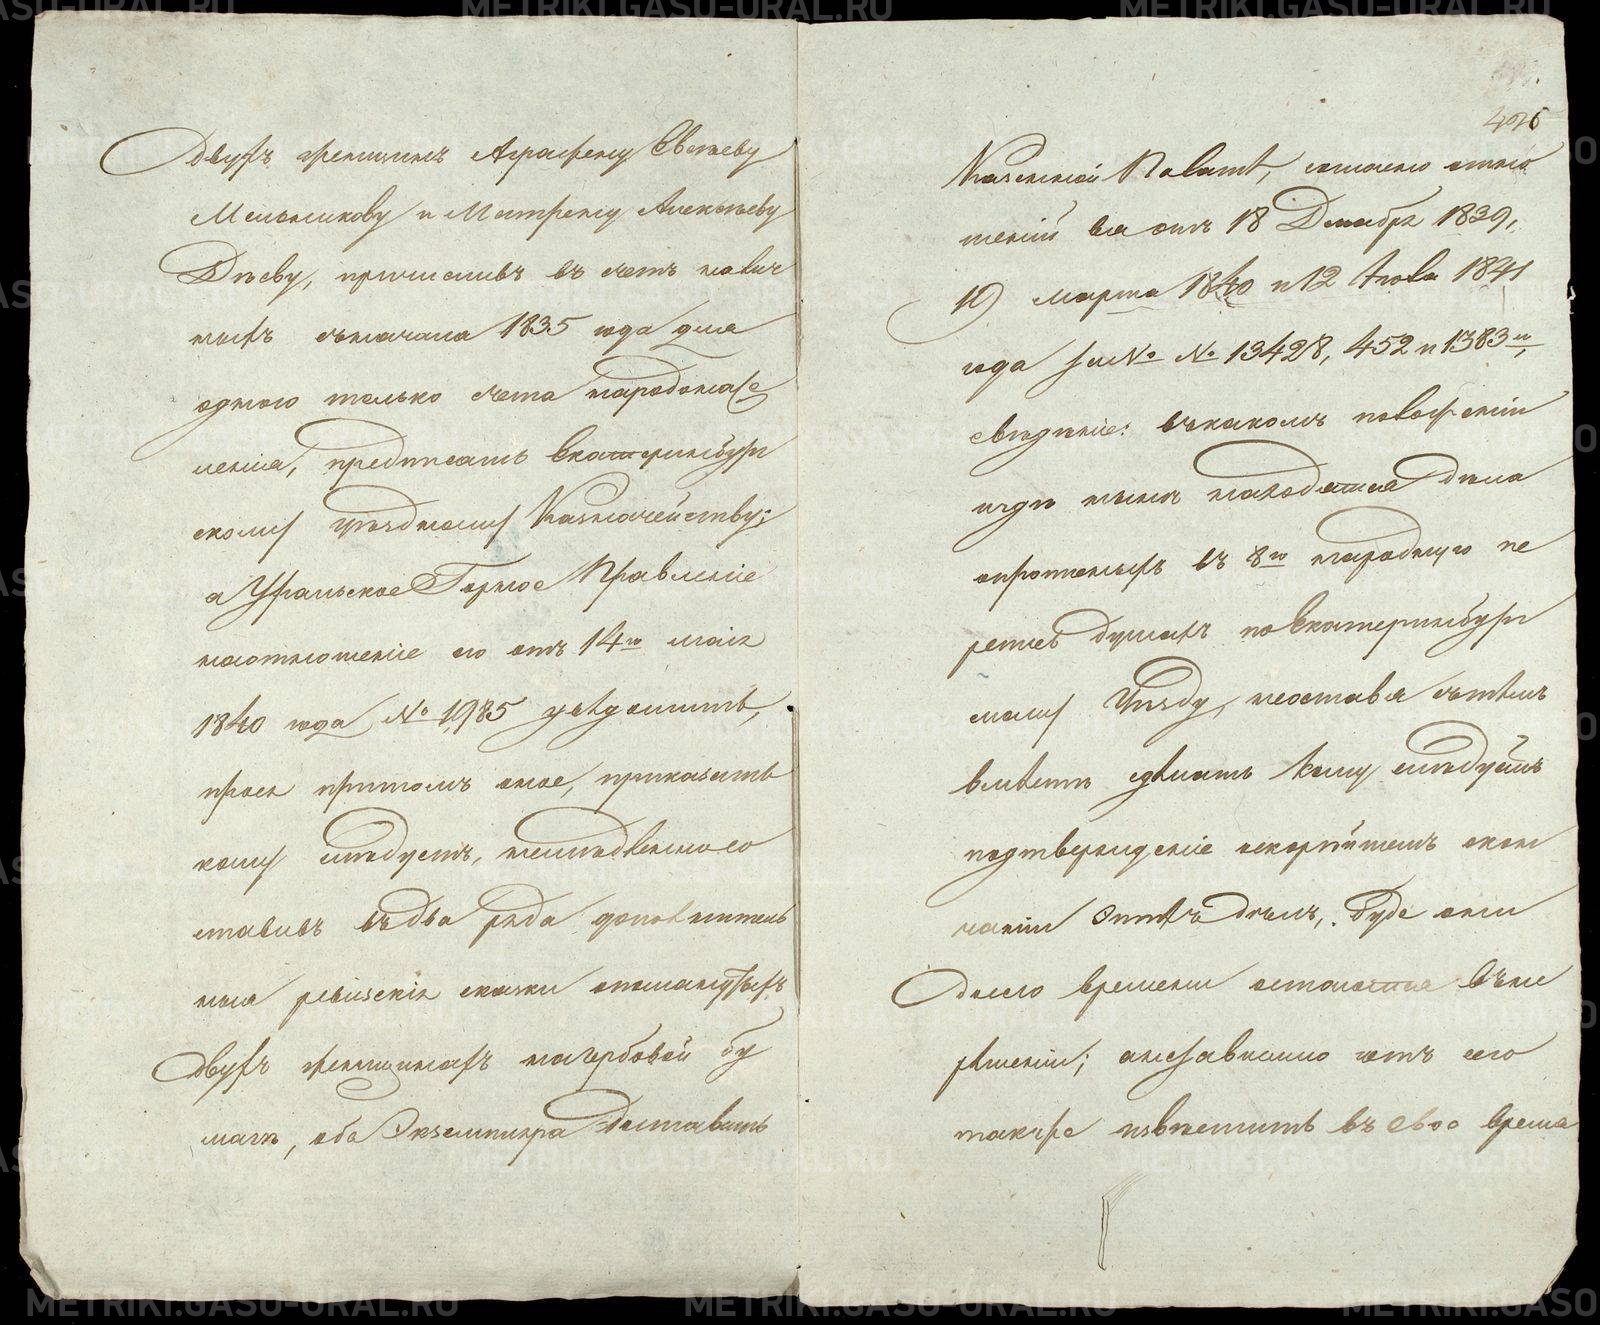 двухъ женщинъ Аграфену Евсѣеву
Мельникову и Матрену Алексѣеву
Дѣеву, причисливъ въ счетъ налич
ныхъ съначала 1835 года для
одного только счета народонасе
ленія, предписать Екатеринбург
скому Уѣздному Казначейству;
а Уральское Горное Правленіе
наотношеніе его отъ 14го маія
1840 года № 1985 уведомить,
прося притомъ оное, приказать
кому слѣдуетъ, немѣдленно со
ставивъ въдва ряда дополнитель
ныя ревизскія сказки опоманутыхъ
двухъ женщинахъ нагербовой бу
магѣ, оба Экземпляра доставить
426
Казенной Палатѣ, согласно отно
шеній ея отъ 18 Декабря 1839,
19 марта 1840 и 12 Іюля 1841
года за №№ 13428, 452 и 1383м,
свѣдѣніе: въкакомъ положеніи
игдѣ нынѣ находятся дѣла
опрописныхъ въ 8ю народную пе
репись душахъ поЕкатеринбург
скому Уѣзду, неоставя сътѣмъ
вмѣстѣ сдѣлать кому слѣдуетъ
подтвержденіе искорѣйшемъ окон
чаніи Этихъ дѣлъ, буде они
досего времени остаются въне
рѣшеніи; анезависимо отъ сего
также извѣстить въ свое время
METRIKI.GASO-URAL.RU